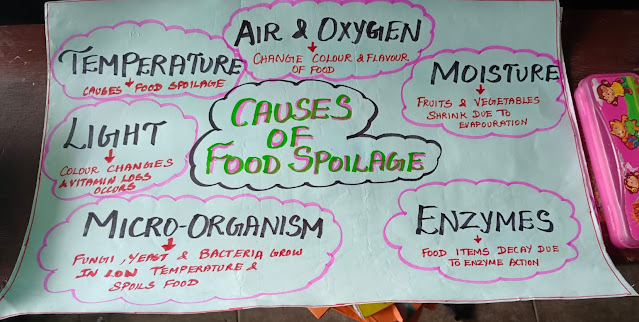 AIR & OXYGEN
CHANGE COLOUR & FLAVOUR
OF FOOD
TEMPERATURE
CAUSES FOOD SPOILAGE
MOISTURE
FRUITS & VEGETABLES
SHRINK DUE TO
EVAPOURATION
CAUSES
OF
FOOD SPOILAGE
LIGHT
COLOUR CHANGES
& VITAMIN LOSS
OCCURS
MICRO-ORGANISM
FUNGI, YEAST & BACTERIA GROW
IN LOW TEMPERATURE &
SPOILS FOOD
ENZYMES
FOOD ITEMS DECAY DUE
TO ENZYME ACTION